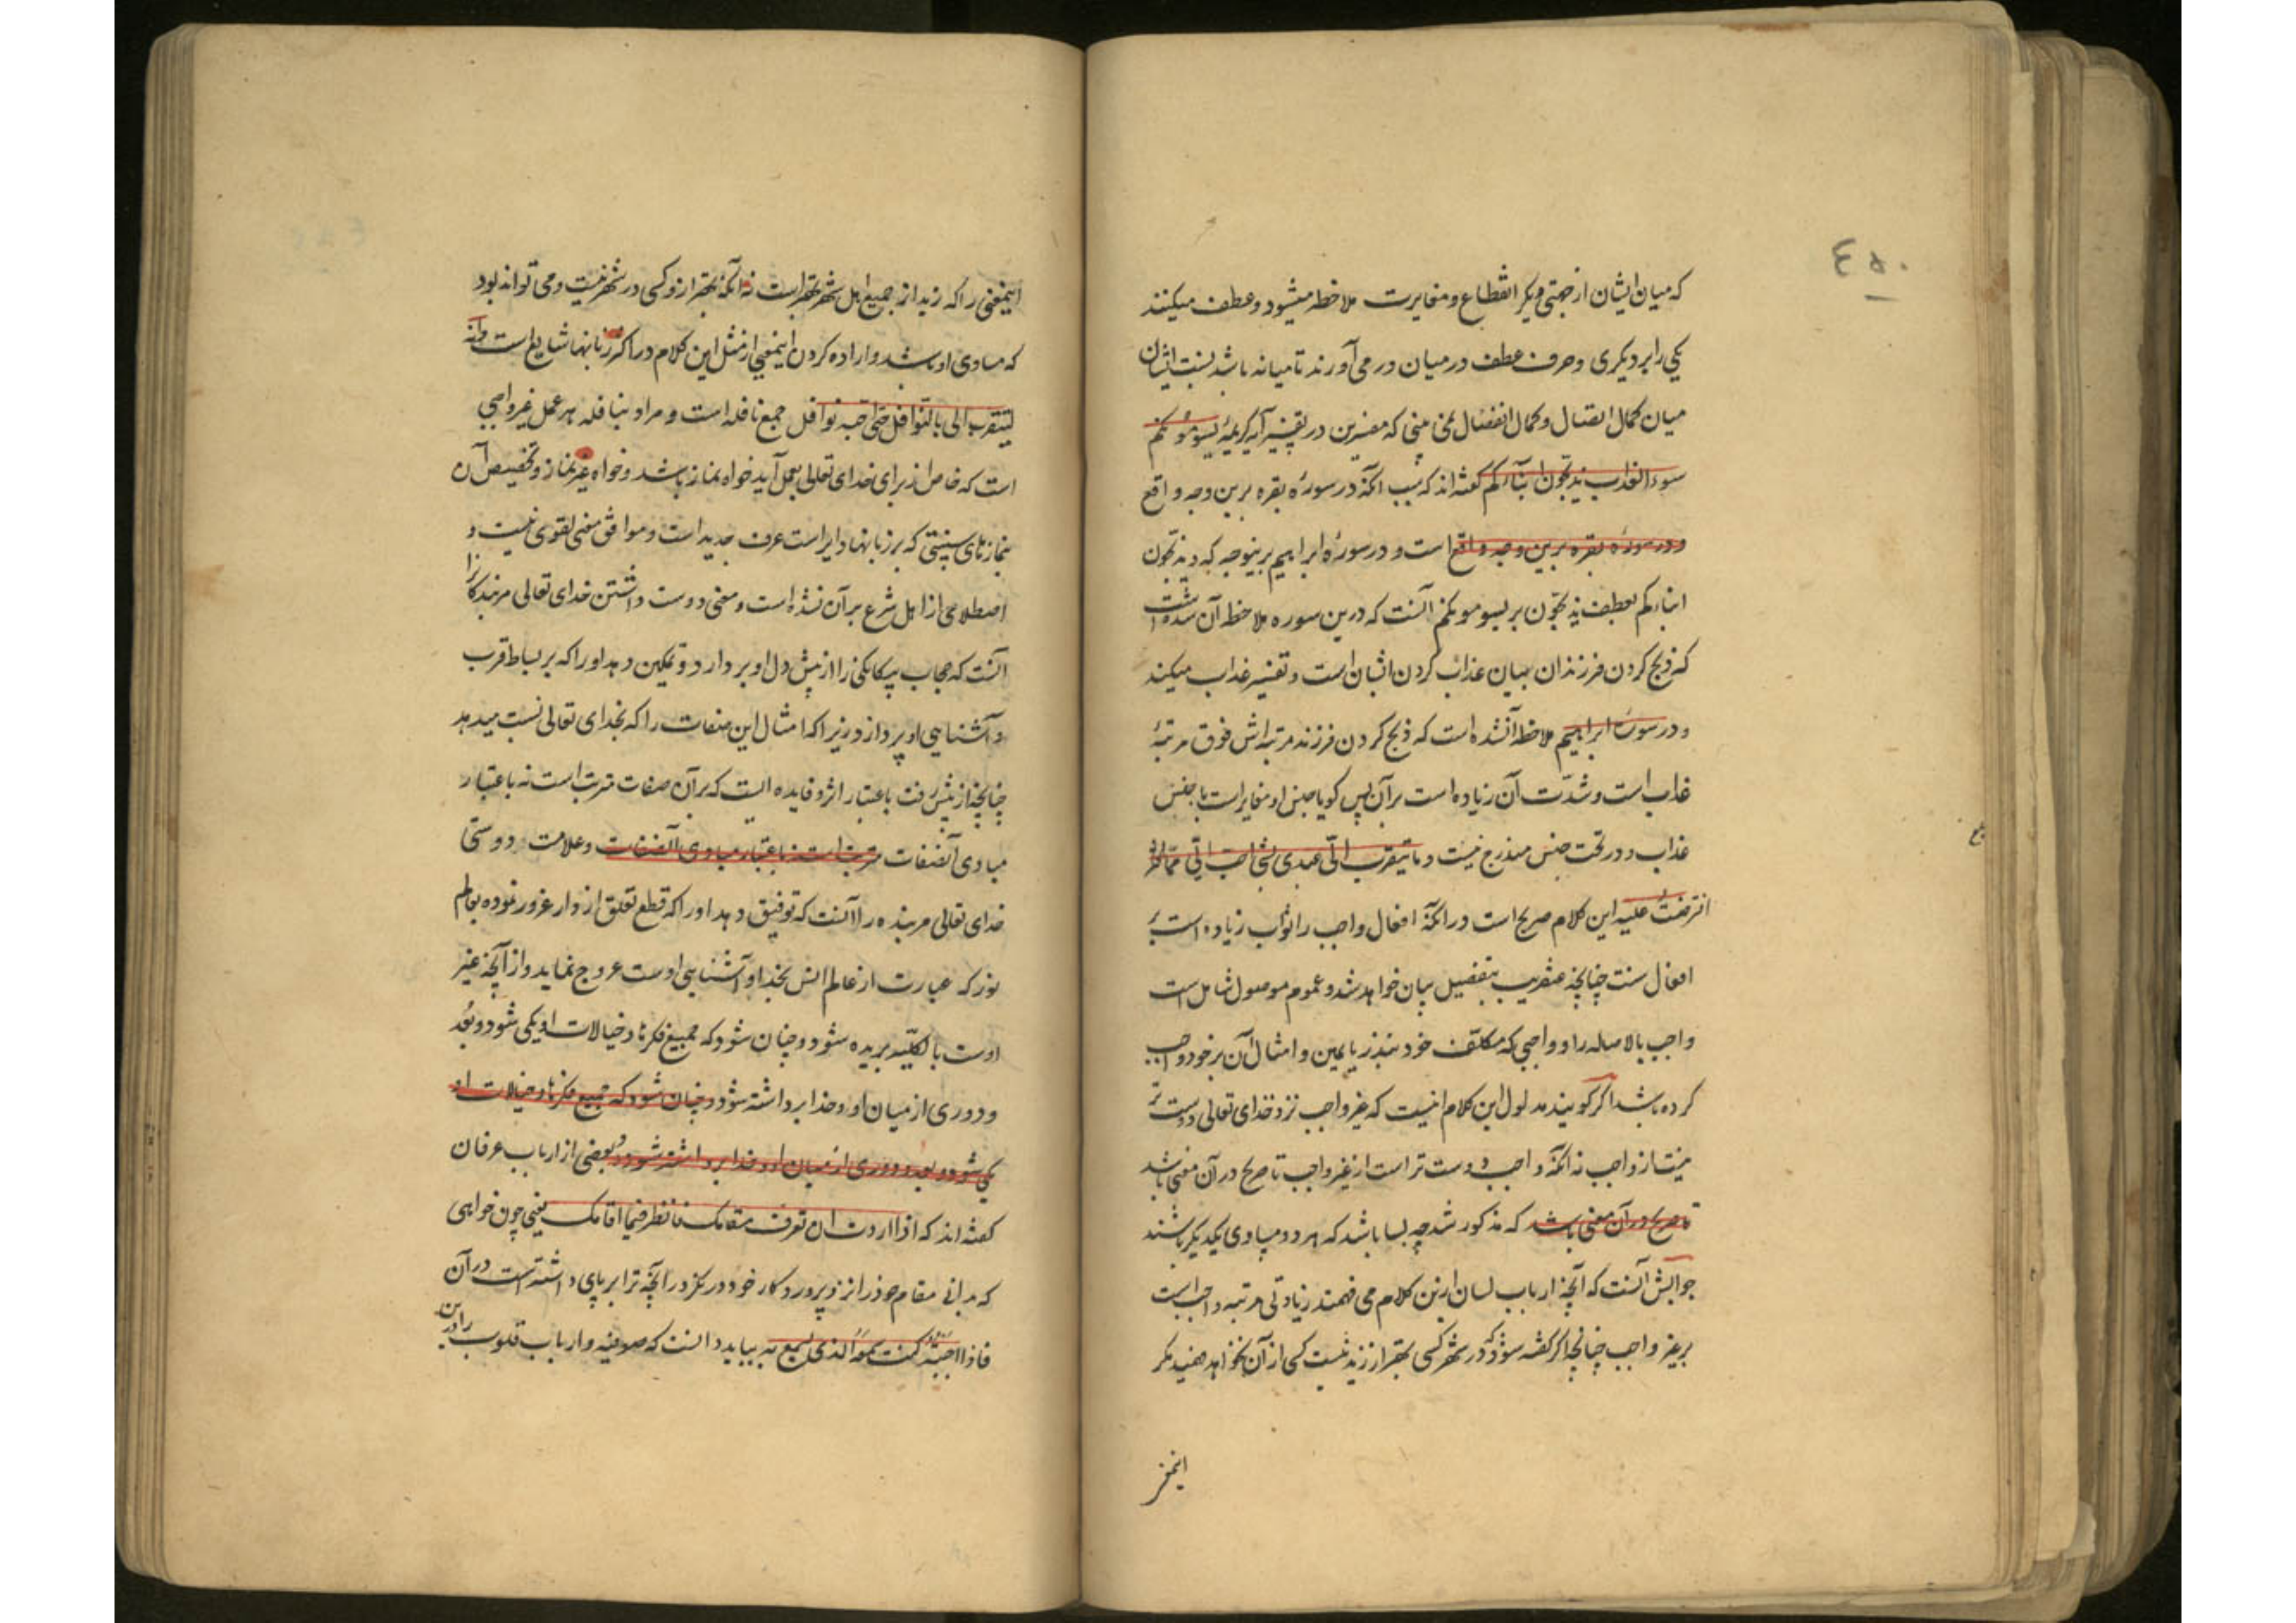 ٤٥٠
که میان ایشان از جهتی دیکر انقطاع و مغایرت ملاحظه میشود و عطف میکنند
یکی را بر دیکری و حرف عطف در میان در می‌آورند تا میانه باشد نسبت ایشان
میان کمال اتصال و کمال انفصال نمی بینی که مفسرین در تفسیر آیه کریمهٔ یسومونکم
سوء العذاب یذبحون ابنآءکم کفته‌اند که سبب آنکه در سورهٔ بقره برین وجه واقع
و در سورهٔ بقره برین وجه واقع است و در سورهٔ ابراهیم برینوجه که و یذبحون
ابناءکم بعطف یذبحون بر یسومونکم آنست که درین سوره ملاحظه آن شده است
که ذبح کردن فرزندان بیان عذاب کردن ایشان است و تفسیر عذاب میکند
و در سورت ابراهیم ملاحظه آنشده است که ذبح کردن فرزند مرتبه‌اش فوق مرتبهٔ
عذاب است و شدّت آن زیاده است بر آن پس کویا جنس او مغایر است با جنس
عذاب و در تحت جنس مندرج نیست و ما یتقرب الیّ عبدی بشی احب الیّ ممّا
افترضتُ علیه این کلام صریح است در آنکه افعال واجب را ثواب زیاده است بر
افعال سنت چنانچه عنقریب بتفصیل بیان خواهد شد و عموم موصول شامل است
واجب بالاصاله را و واجبی که مکلف خود بنذر یا یمین و امثال آن بر خود واجب
کرده باشد اکر کویند مدلول این کلام اینست که غیر واجب نزد خدای تعالی دوست تر
نیست از واجب نه آنکه واجب دوست تر است از غیر واجب تا صریح در آن معنی باشد
تا صریح در آن معنی باشد که مذکور شد چه بسا باشد که هر دو مساوی یکدیکر باشند
جوابش آنست که آنچه ارباب لسان ازین کلام می فهمند زیادتی مرتبه واجب است
بر غیر واجب چنانچه اکر کفته شود که در شهر کسی بهتر از زید نیست کسی از آن نخواهد فهمید مکر
اینمعنی
اینمعنی را که زید از جمیع اهل شهر بهتر است نه آنکه بهتر ازو کسی در شهر نیست و می تواند بود
که مساوی او باشد و اراده کردن اینمعنی از مثل این کلام در اکثر زبانها شایع است وانه
لیتقرب الی بالنوافل حتی احبه نوافل جمع نافله است و مراد بنافله هر عمل غیر واجبی
است که خاص از برای خدای تعالی بعمل آید خواه نماز باشد و خواه غیر نماز و تخصیص آن
بنمازهای سنتی که بر زبانها دایر است عرف جدید است و موافق معنی لغوی نیست و
اصطلاحی از اهل شرع بر آن نشده است و معنی دوست داشتن خدای تعالی مر بندکانرا
آنست که حجاب بیکانکی را از پیش دل او بر دارد و تمکین دهد او را که بر بساط قرب
و آشنایی او پردازد زیرا که امثال این صفات را که بخدای تعالی نسبت میدهد
چنانچه از پیش رفت باعتبار اثر و فایده ایست که بر آن صفات مترتب است نه باعتبار
مبادی آنصفات مترتب است نه باعتبار مبادی آنصفات و علامت دوستی
خدای تعالی مر بنده را آنست که توفیق دهد او را که قطع تعلق از دار غرور نموده بعالم
نور که عبارت از عالم انس بخدا و آشنایی اوست عروج نماید و از آنچه غیر
اوست بالکلیّه بریده شود و چنان شود که جمیع فکرها و خیالات او یکی شود و بُعد
و دوری از میان او و خدا برداشته شود و چنان شود که جمیع فکرها و خیالات او
یکی شود و بعد و دوری از میان او و خدا برداشته شود و بعضی از ارباب عرفان
کفته‌اند که اذا اردت ان تعرف مقامک فانظر فیما اقامک یعنی چون خواهی
که بدانی مقام خود را نزد پروردکار خود در نکر در آنچه ترا بر پای داشته است در آن
فاذا احببته کنت سمعه الذی یسمع به بباید دانست که صوفیه و ارباب قلوب را درین